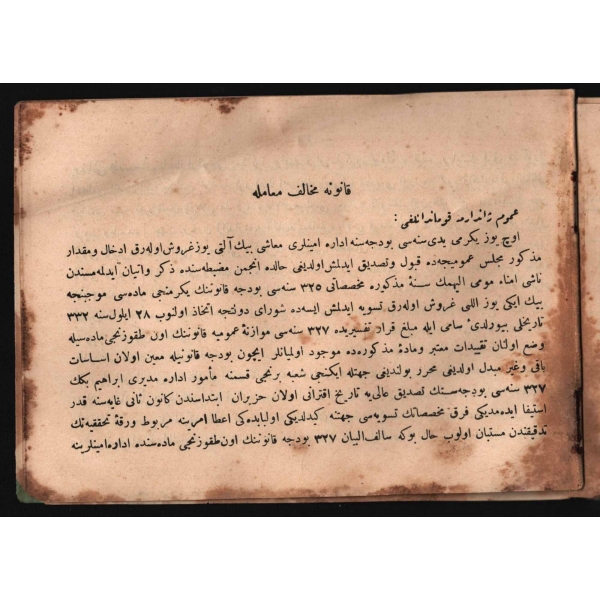 قانونه مخالف معامله
عموم ژاندارمه قوماندانلغى :
اوچ يوز يكرمى يدى سنه‌سى بودجه‌سنه اداره امينلرى معاشى بيك آلتى يوز غروش اوله‌رق ادخال ومقدار
مذكور مجلس عموميجه‌ده قبول وتصديق ايدلمش اولديغى حالده انجمن مضبطه‌سنده ذكر واتيان ايدلمه‌مسندن
ناشى امناء مومى اليهمك سنۀ مذكوره مخصصاتى ٣٢٥ سنه‌سى بودجه قانوننك يكرمنجى ماده‌سى موجبنجه
بيك ايكى يوز اللى غروش اوله‌رق تسويه ايدلمش ايسه‌ده شوراى دولتجه اتخاذ اولنوب ٢٨ ايلول سنه ٣٣٢
تاريخلى بيورلدىء سامى ايله مبلغ قرار تفسيريده ٣٢٧ سنه‌سى موازنۀ عموميه قانوننك اون طقوزنجى ماده‌سيله
وضع اولنان تقييدات معتبر ومادۀ مذكوره‌ده موجود اوليانلر ايچون بودجه قانونيله معين اولان اساسات
باقى وغير مبدل اولديغى محرر بولنديغى جهتله ايكنجى شعبه برنجى قسمنه مأمور اداره مديرى ابراهيم بكك
٣٢٧ سنه‌سى بودجه‌سنك تصديق عالى‌يه تاريخ اقترانى اولان حزيران ابتداسندن كانون ثانى غايه‌سنه قدر
استيفا ايده‌مديكى فرق مخصصاتك تسويه‌سى جهتنه كيدلديكى اولبابده‌كى اعطا امرينه مربوط ورقۀ تحقيقيه‌نك
تدقيقندن مستبان اولوب حال بوكه سالف‌البيان ٣٢٧ بودجه قانوننك اون طقوزنجى ماده‌سنده اداره امينلرينه